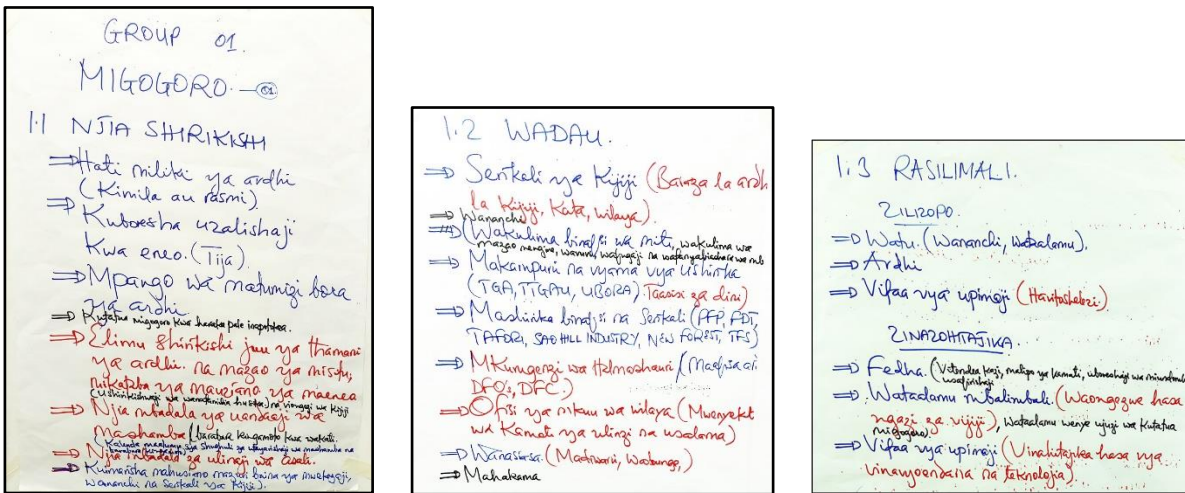 GROUP 01.
MIGOGORO. — 01.
1.1 NJIA SHIRIKISHI
⇒ Hati miliki ya ardhi
(Kimila au rasmi)
⇒ Kuboresha uzalishaji
kwa eneo. (Tija).
⇒ Mpango wa matumizi bora
ya ardhi
⇒ Kutatua migogoro kwa haraka pale inapotokea.
⇒ Elimu shirikishi juu ya thamani
ya ardhi. na mazao ya misitu,
mikataba ya mauziano ya maeneo
(Ushirikishwaji wa wanafamilia husika) na viongozi wa Kijiji
⇒ Njia mbadala ya uandaaji wa
mashamba (barabara kwa wakati.
⇒ Njia mbadala za ulinaji wa asali.
⇒ Kuimarisha mahusiano mazuri baina ya mwekezaji,
wananchi na Serikali ya Kijiji).
1.2 WADAU.
⇒ Serikali ya Kijiji (Baraza la ardhi
la Kijiji, Kata, wilaya).
⇒ Wananchi
⇒ (Wakulima binafsi wa miti, wakulima wa
mazao mengine, wavunaji, wafugaji na wafanyabiashara wa
⇒ Makampuni na vyama vya Ushirika
(TGA, TTGAU, UBORA). Taasisi za dini)
⇒ Mashirika binafsi na Serikali (PFP, FDT,
TAFORI, SAO HILL INDUSTRY, NEW FOREST, TFS)
⇒ Mkurugenzi wa Halmashauri (Maafisa
DFO's, DFC.)
⇒ Ofisi ya mkuu wa wilaya (Mwenyekiti
wa Kamati ya ulinzi na usalama)
⇒ Wanasiasa. (Madiwani, Wabunge,)
⇒ Mahakama
1.3 RASILIMALI.
ZILIZOPO.
⇒ Watu. (Wananchi, wataalamu).
⇒ Ardhi
⇒ Vifaa vya upimaji (Havitoshelezi.)
ZINAZOHITAJIKA.
⇒ Fedha. (Vitendea kazi, malipo ya kamati,
⇒ Wataalamu mbalimbali. (Waongezwe hasa
ngazi za vijiji), Wataalamu wenye ujuzi wa Kutatua
migogoro
⇒ Vifaa vya upimaji (Vinahitajika hasa vya
vinavyoendana na teknolojia).